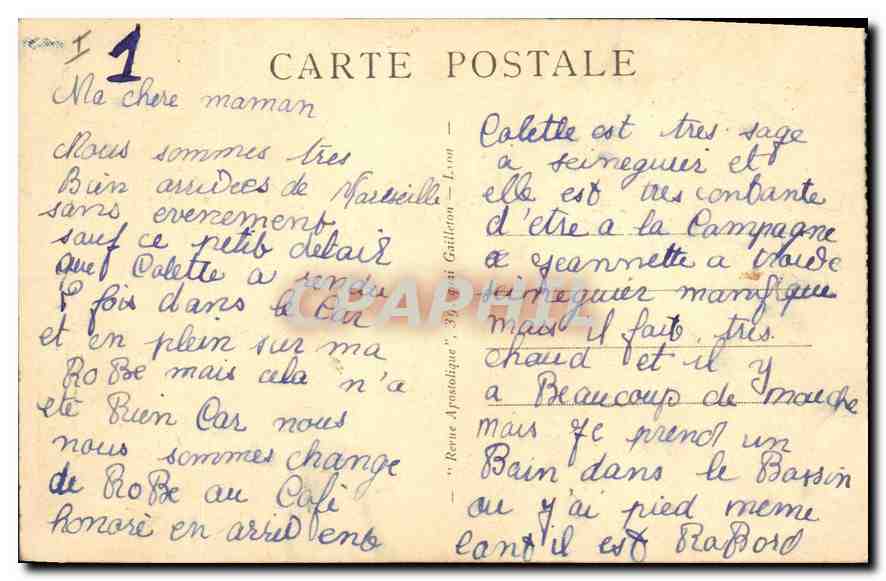 I 1
CARTE POSTALE
Ma chere maman
Nous sommes tres
Bien arrivees de Marseille
sans evenement
sauf ce petit detail
que Colette a rendu
fois dans le Car
et en plein sur ma
RoBe mais cela n'a
ete Rien Car nous
nous sommes change
de RoBe au Café
honoré en arrivent
"Revue Apostolique", 39, quai Gailleton — Lyon —
Colette est tres sage
a seineguier et
elle est tres contante
d'etre a la Campagne
a Jeannette a trouve
seineguier manifique
mais il fait tres
chaud et il y
a Beaucoup de mouche
mais Je prend un
Bain dans le Bassin
ou j'ai pied meme
tant il est RaBord
CPAPHIL